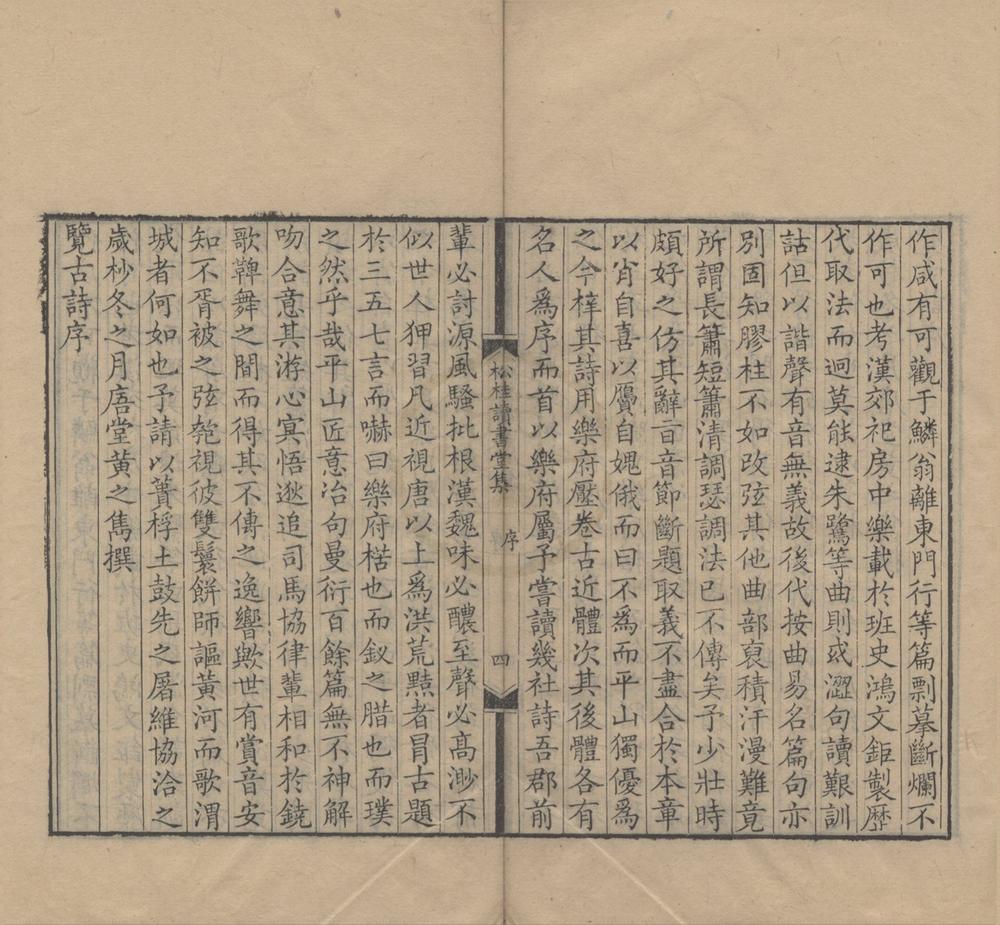 作咸有可觀于鱗翁離東門行等篇剽摹斷爛不
作可也考漢郊祀房中樂載於班史鴻文鉅製歷
代取法而迥莫能逮朱鷺等曲則或澀句讀艱訓
詁但以諧聲有音無義故後代按曲易名篇句亦
別固知膠柱不如改弦其他曲部裒積汗漫難竟
所謂長簫短簫清調瑟調法已不傳矣予少壯時
頗好之仿其辭音節斷題取義不盡合於本章
以肖自喜以贗自媿俄而曰不爲而平山獨優爲
之今梓其詩用樂府壓卷古近體次其後體各有
名人爲序而首以樂府屬予嘗讀幾社詩吾郡前
松桂讀書堂集 序 四
輩必討源風騷批根漢魏味必醲至聲必高渺不
似世人狎習凡近視唐以上爲洪荒黠者冒古題
於三五七言而嚇曰樂府楛也而釵之腊也而璞
之然乎哉平山匠意冶句曼衍百餘篇無不神解
吻合意其游心冥悟逖追司馬協律輩相和於鐃
歌鞞舞之間而得其不傳之逸響歟世有賞音安
知不胥被之弦匏視彼雙鬟餅師謳黃河而歌渭
城者何如也予請以蕢桴土鼓先之屠維協洽之
歲杪冬之月㢈堂黃之雋撰
覽古詩序